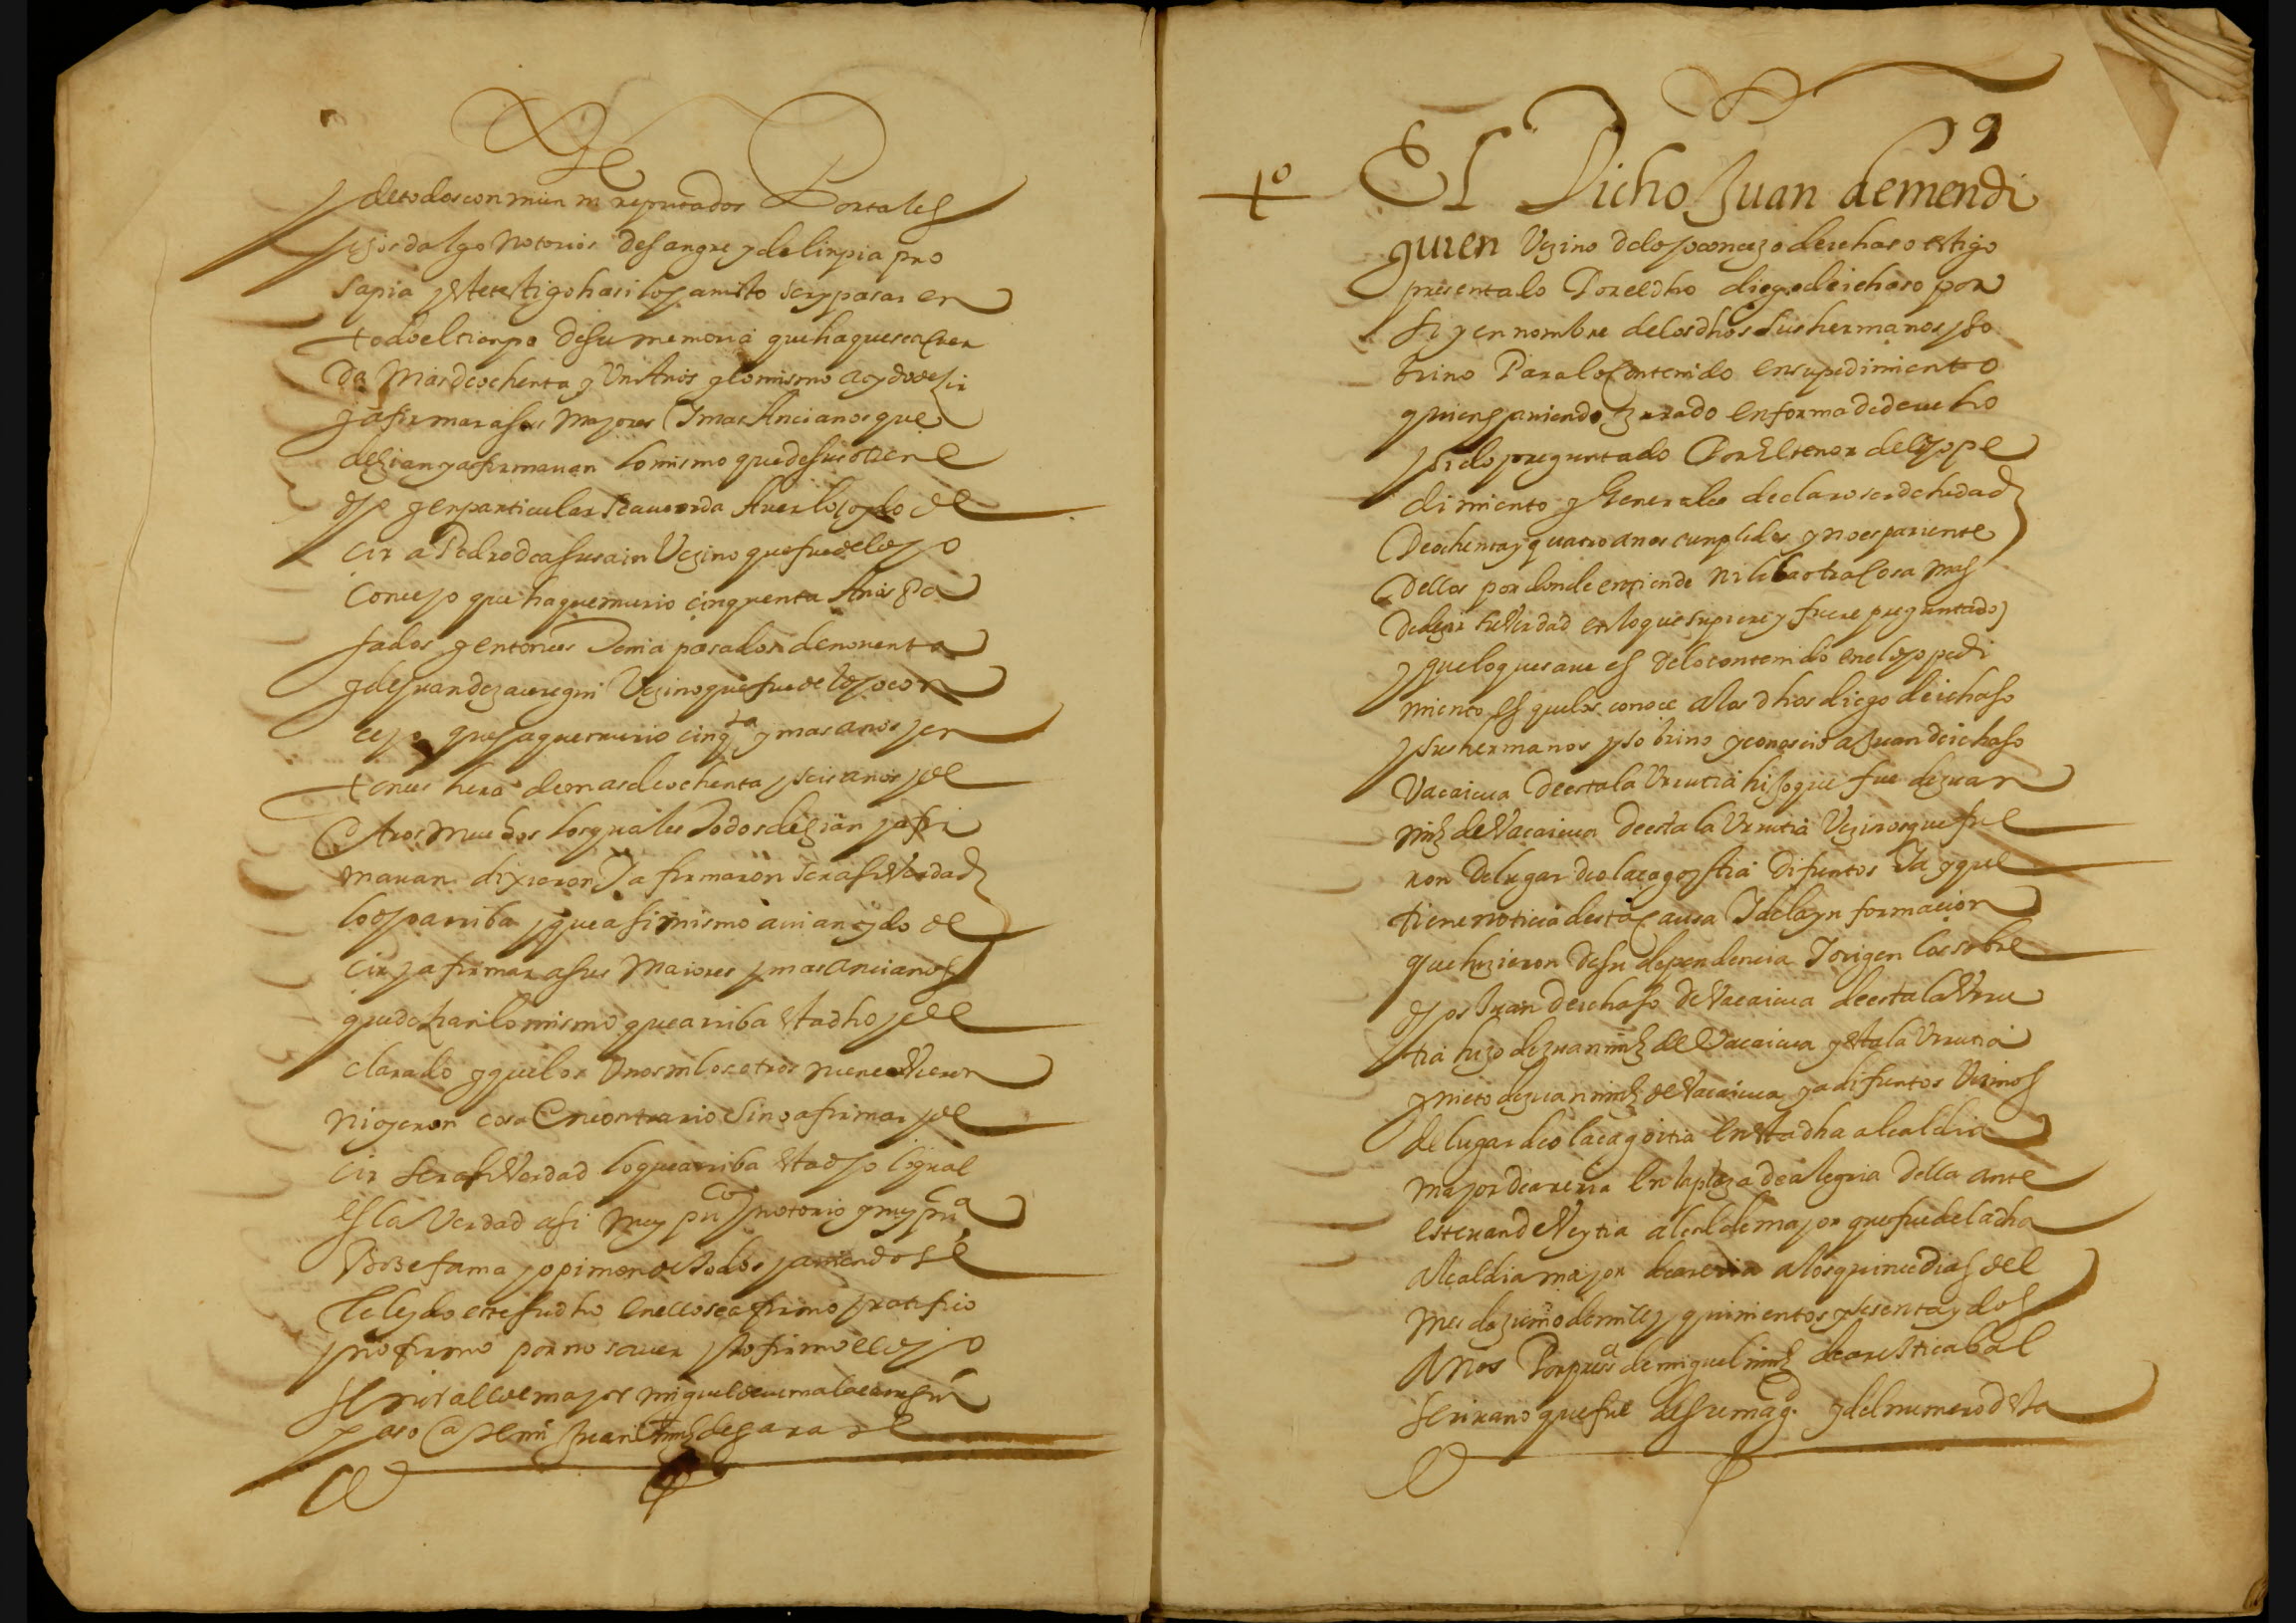 y de todos comun m reputados Por tales
hijosdalgo notorios de sangre y de linpia pro
sapia y este testigo hasi lo a visto ser y pasar en
todo el tienpo de su memoria que ha que se acuer
da mas de ochenta y un Años y lo mismo a oydo desir
y afirmar a sus mayores y mas Ancianos que
dezian y afirmauan lo mismo que de suso tiene
dho y en particular se acuerda Auerlo oydo de
cir a Pedro de Vzino que fue del dho
Concejo que ha que murio cinquenta Años Pa
sados y entonces Tenia pasados de nouenta
y de Juan de Vzino que fue del dho con
cejo que ha que murio cinqta y mas anos y en
tonces hera de mas de ochenta y seis anos y de
otros muchos los quales Todos dezian y afir
mauan dixieron Y afirmaron ser asi Verdad
lo dho arriba y que asi mismo auian oydo de
cir y afirmar a sus Maiores y mas ancianos
que dezian lo mismo que arriba esta dho y de
clarado y que los Vnos ni los otros nunca Vieron
ni oyeron cosa En contrario Sino afirmar y de
cir Ser asi Verdad lo que arriba esta dho lo qual
es la Verdad asi muy puco y notorio y muy puca
Boz e fama y opinion de todos y auiendose
le leydo este su dho en ello se afirmo y ratifico
y no firmo por no sauer y lo firmo el dho
Senor allde mayor miguel de
paso Ante mi Juan mnz de gara
9
to El Dicho Juan de mendi
guren Vzino del dho concejo de ichaso testigo
presentado Por el dho diego de ichaso por
si y en nombre de los dhos sus hermanos y so
brino Para lo Contenido en su pedimiento
quien hauiendo Jurado en forma de derecho
y sido preguntado Por El tenor del dho pe
dimiento y Generales declaro ser de hedad
De ochenta y quatro anos cumplidos y no es pariente
Dellos por donde entiende ni le ba otra Cosa mas
De dezir la Verdad en lo que supiere y fuere preguntado
y que lo que saue es De lo contenido en el dho pedi
miento es que los conoce a los dhos diego de ichaso
y sus hermanos y sobrino y conoscio a Juan de ichaso
Vacaicua De esta la Vrrutia hijo que fue de Juan
mnz de Vacaicua De esta la Vrrutia Vzinos que fue
ron Del lugar de olacagoystia Difuntos Ya y que
tiene noticia desta Causa Y de la ynformacion
que hizieron De su dependencia Y origen los sobre
dhos Juan de ichaso De Vacaicua de esta la Vrru
tia hijo de Juan mnz de Vacaicua y esta la Vrrutia
y nieto de Juan mnz de Vacaicua ya difuntos Vzinos
del lugar de olacagoitia en esta dha alcaldia
mayor de areria En la plaza de alegria Della ante
esteuan de Veytia alcalde mayor que fue de la dha
Alcaldia mayor de areria a los quince dias del
mes de Junio de mill y quinientos y sesenta y dos
Anos Por presa de miguel mnz de aresticabal
Scriuano que fue de su magd y del numero desta